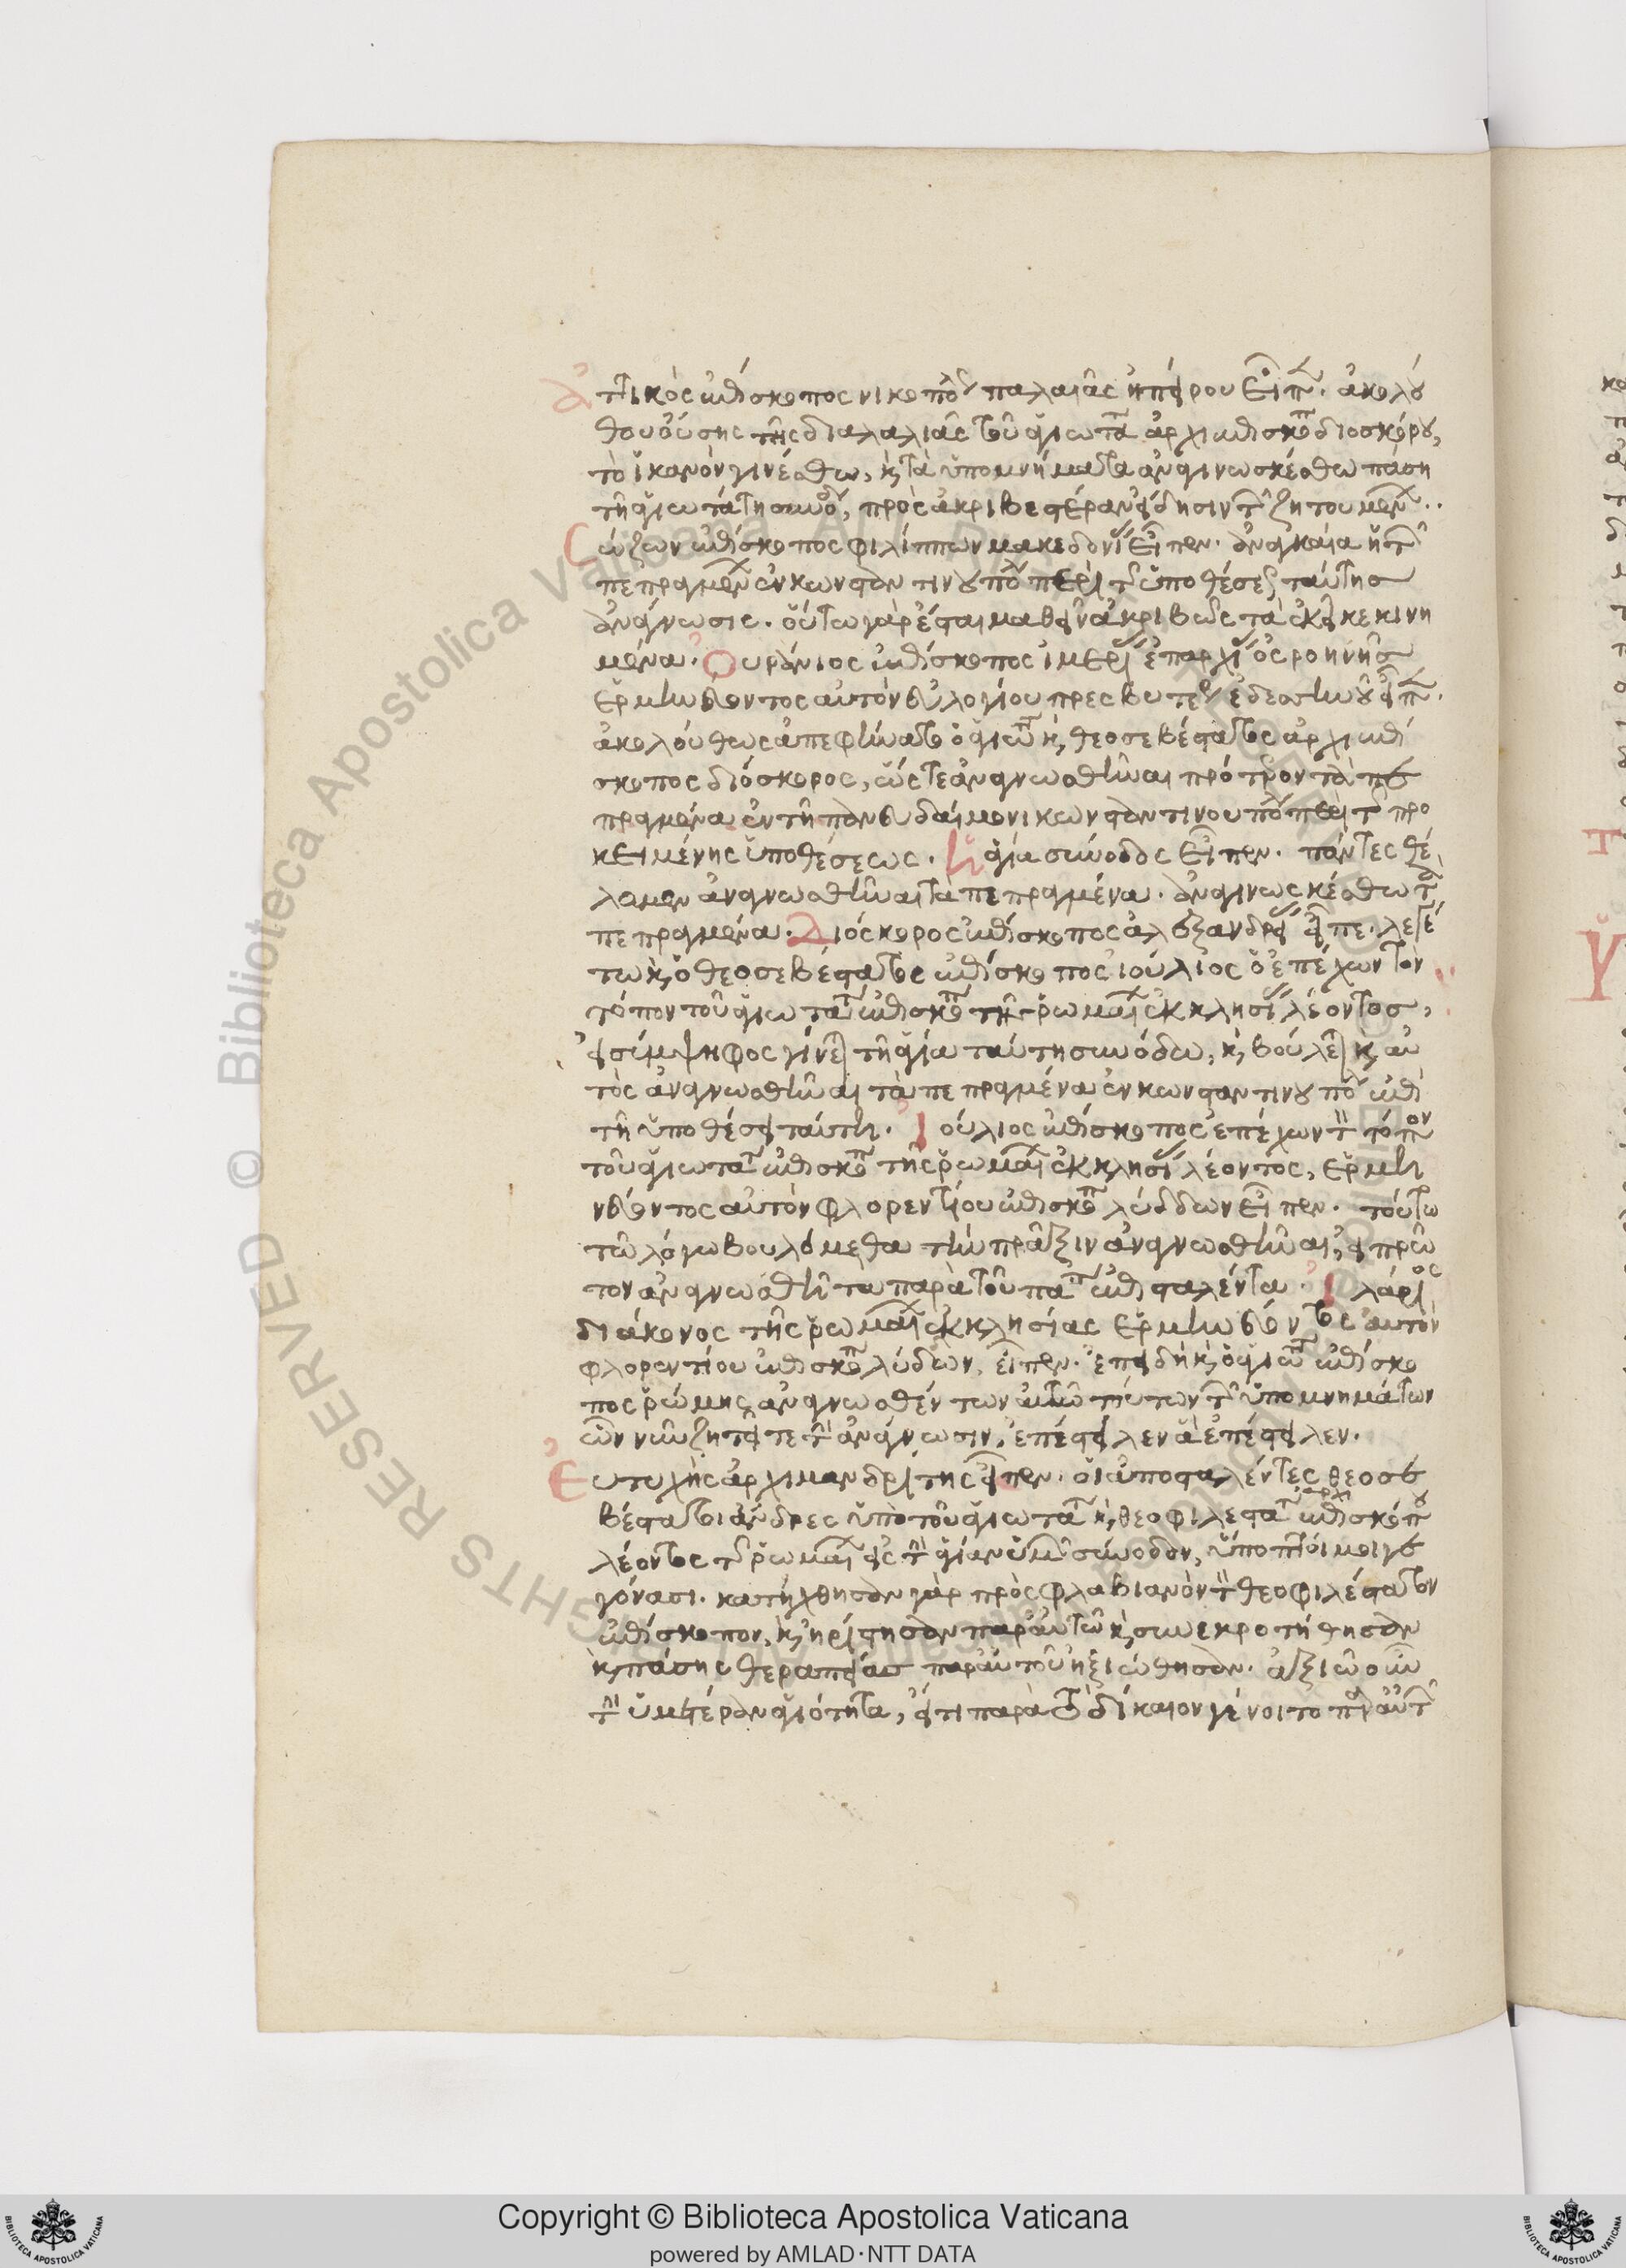 ἀττικὸς ἐπίσκοπος νικοπόλ παλαιᾶς ἠπείρου εἶπ. ἀκολου
θούσης τῆς διαλαλιᾶς τοῦ ἁγιωτα ἀρχιεπισκοπ διοσκόρου,
τὸ ἱκανὸν γινέσθω, κ τὰ ὑπομνήματα ἀναγινωσκέσθω πάση
τῆ ἁγιωτάτη συνόδ, πρὸς ἀκριβεστέραν εἴδησιν τ ζητουμεν..
Σώζων ἐπίσκοπος φιλίππων μακεδονί εἶπεν. ἀναγκαία ἡ τ
πεπραγμεν ἐν κωνσταντινουπό περὶ τ ὑποθέσε ταύτης
ἀνάγνωσις. οὕτω γὰρ ἔσται μαθεῖν ἀκριβῶς τὰ ἐκεῖ κεκινη
μένα. Οὐράνιος ἐπίσκοπος ἱμερί ἐπαρχί ὀσροηνῆς
ἑρμηνεύοντος αὐτὸν εὐλογίου πρεσβυτέρ ἐδεσηνοῦ εἶπ.
ἀκολούθως ἀπεφήνατο ὁ ἁγιωτ κ θεοσεβέστατος ἀρχιεπί
σκοπος διόσκορος, ὥστε ἀναγνωσθῆναι πρότρον τὰ πε
πραγμένα ἐν τῆ πανευδαίμονι κωνσταντινουπό περὶ τ προ
κειμένης ὑποθέσεως. Ἡ ἁγία σύνοδος εἶπεν. πάντες θέ
λομεν ἀναγνωσθῆναι τὰ πεπραγμένα. ἀναγινωσκέσθω τὰ
πεπραγμένα. Διόσκορος ἐπίσκοπος ἀλεξανδρεί εἶπε. λεγέ
τω κ ὁ θεοσεβέστατος ἐπίσκοπος ἰούλιος ὁ ἐπέχων τὸν
τόπον τοῦ ἁγιωτατ ἐπισκοπ τῆ ῥωμαί ἐκκλησί λέοντος,
εἰ σύμψηφος γίνε τῆ ἁγία ταύτη συνόδω, κ βούλε κ αὐ
τὸς ἀναγνωσθῆναι τὰ πεπραγμένα ἐν κωνσταντινουπό ἐπὶ
τῆ ὑποθέσει ταύτη. Ἰούλιος ἐπίσκοπος ἐπέχων τ τόπον
τοῦ ἁγιωτατ ἐπισκοπ τῆς ῥωμαί ἐκκλησί λέοντος, ἑρμη
νεύοντος αὐτὸν φλορεντίου ἐπισκοπ λύδδων εἶπεν. τούτω
τῶ λόγω βουλόμεθα τὴν πρᾶξιν ἀναγνωσθῆναι, εἰ πρῶ
τον ἀναγνωσθῆ τα παρὰ τοῦ πα ἐπισταλέντα. Ἱλάριος
διάκονος τῆς ῥωμαί ἐκκλησίας ἑρμηνεύοντος αὐτὸν
φλορεντίου ἐπισκοπ λύδων, εἶπεν. ἐπειδὴ κ ὁ ἁγιωτ ἐπίσκο
πος ῥώμης, ἀναγνωσθέντων αὐτῶ τούτων τ ὑπομνημάτων
ὧν νῦν ζητεῖτε τ ἀνάγνωσιν, ἐπέστειλεν ἃ ἐπέστειλεν.
Εὐτυχὴς ἀρχιμανδρίτης εἶπεν. οἱ ἀποσταλέντες θεοσε
βέστατοι ἄνδρες ὑπὸ τοῦ ἁγιωτατ κ θεοφιλεστατ ἀρχιεπισκόπου
λέοντος τ ῥωμαί εἰς τ ἁγίαν ὑμ σύνοδον, ὕποπτοί μοι γε
γόνασι. κατήχθησαν γὰρ πρὸς φλαβιανὸν τ θεοφιλέστατον
ἐπίσκοπον, κ ἠρίστησαν παρ' αὐτῶ κ συνεκροτήθησαν
κ πάσης θεραπείας παρ' αὐτοῦ ἠξιώθησαν. ἀξιῶ οὖν
τ ὑμετέραν ἁγιότητα, εἴ τι παρὰ τὸ δίκαιον γένοιτο παρ' αὐτ
Copyright © Biblioteca Apostolica Vaticana
powered by AMLAD·NTT DATA